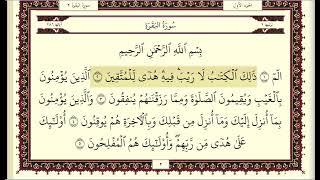 الجزء الأول
سورة البقرة ٢
سُورَةُ البَقَرَةِ
بِسْمِ ٱللَّهِ ٱلرَّحْمَٰنِ ٱلرَّحِيمِ
الٓمٓ ١ ذَٰلِكَ ٱلْكِتَٰبُ لَا رَيْبَ فِيهِ هُدًى لِّلْمُتَّقِينَ ٢ ٱلَّذِينَ يُؤْمِنُونَ
بِٱلْغَيْبِ وَيُقِيمُونَ ٱلصَّلَوٰةَ وَمِمَّا رَزَقْنَٰهُمْ يُنفِقُونَ ٣ وَٱلَّذِينَ يُؤْمِنُونَ
بِمَآ أُنزِلَ إِلَيْكَ وَمَآ أُنزِلَ مِن قَبْلِكَ وَبِٱلْءَاخِرَةِ هُمْ يُوقِنُونَ ٤ أُو۟لَٰٓئِكَ
عَلَىٰ هُدًى مِّن رَّبِّهِمْ وَأُو۟لَٰٓئِكَ هُمُ ٱلْمُفْلِحُونَ ٥
٢